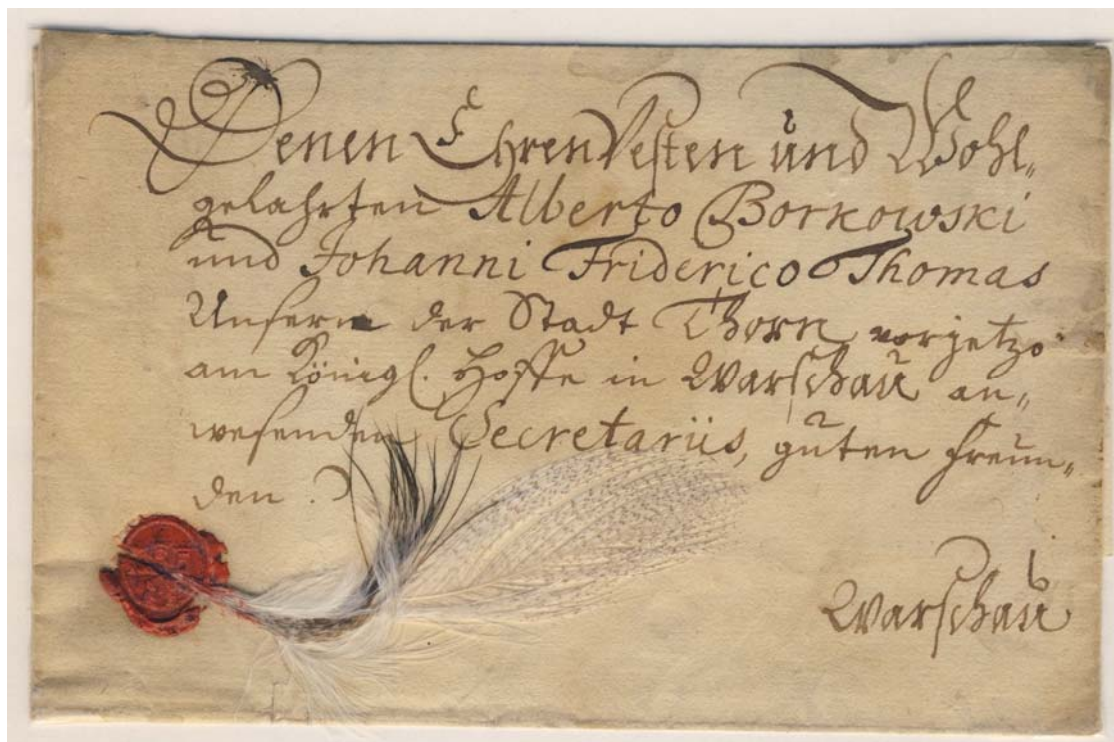 Denen EhrenVesten und Wohl-
gelahrten Alberto Borkowski
und Johanni Friderico Thomas
Unsern der Stadt Thorn vorjetzo
am Königl. Hoffe in Warschau an-
wesenden Secretariis, guten Freun-
den.
Warschau